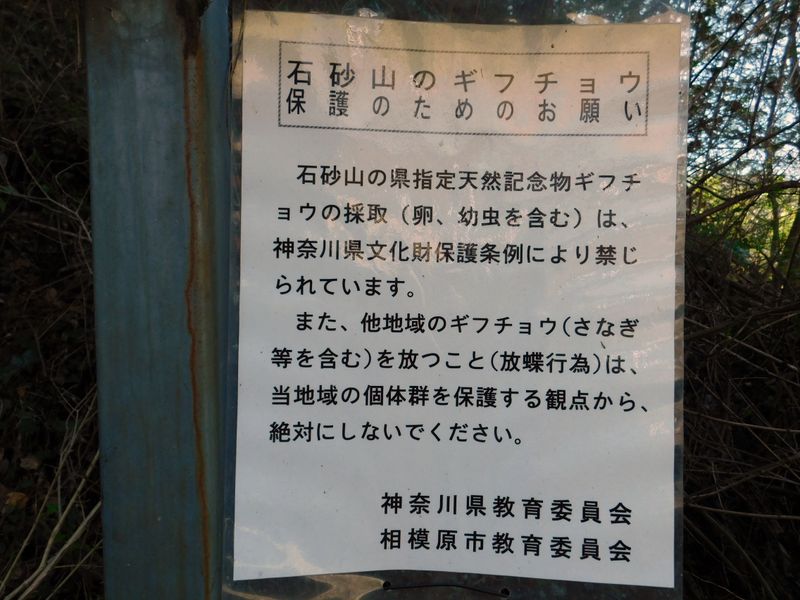 石砂山のギフチョウ
保護のためのお願い
石砂山の県指定天然記念物ギフチ
ョウの採取（卵、幼虫を含む）は、
神奈川県文化財保護条例により禁じ
られています。
また、他地域のギフチョウ(さなぎ
等を含む)を放つこと(放蝶行為)は、
当地域の個体群を保護する観点から、
絶対にしないでください。
神奈川県教育委員会
相模原市教育委員会